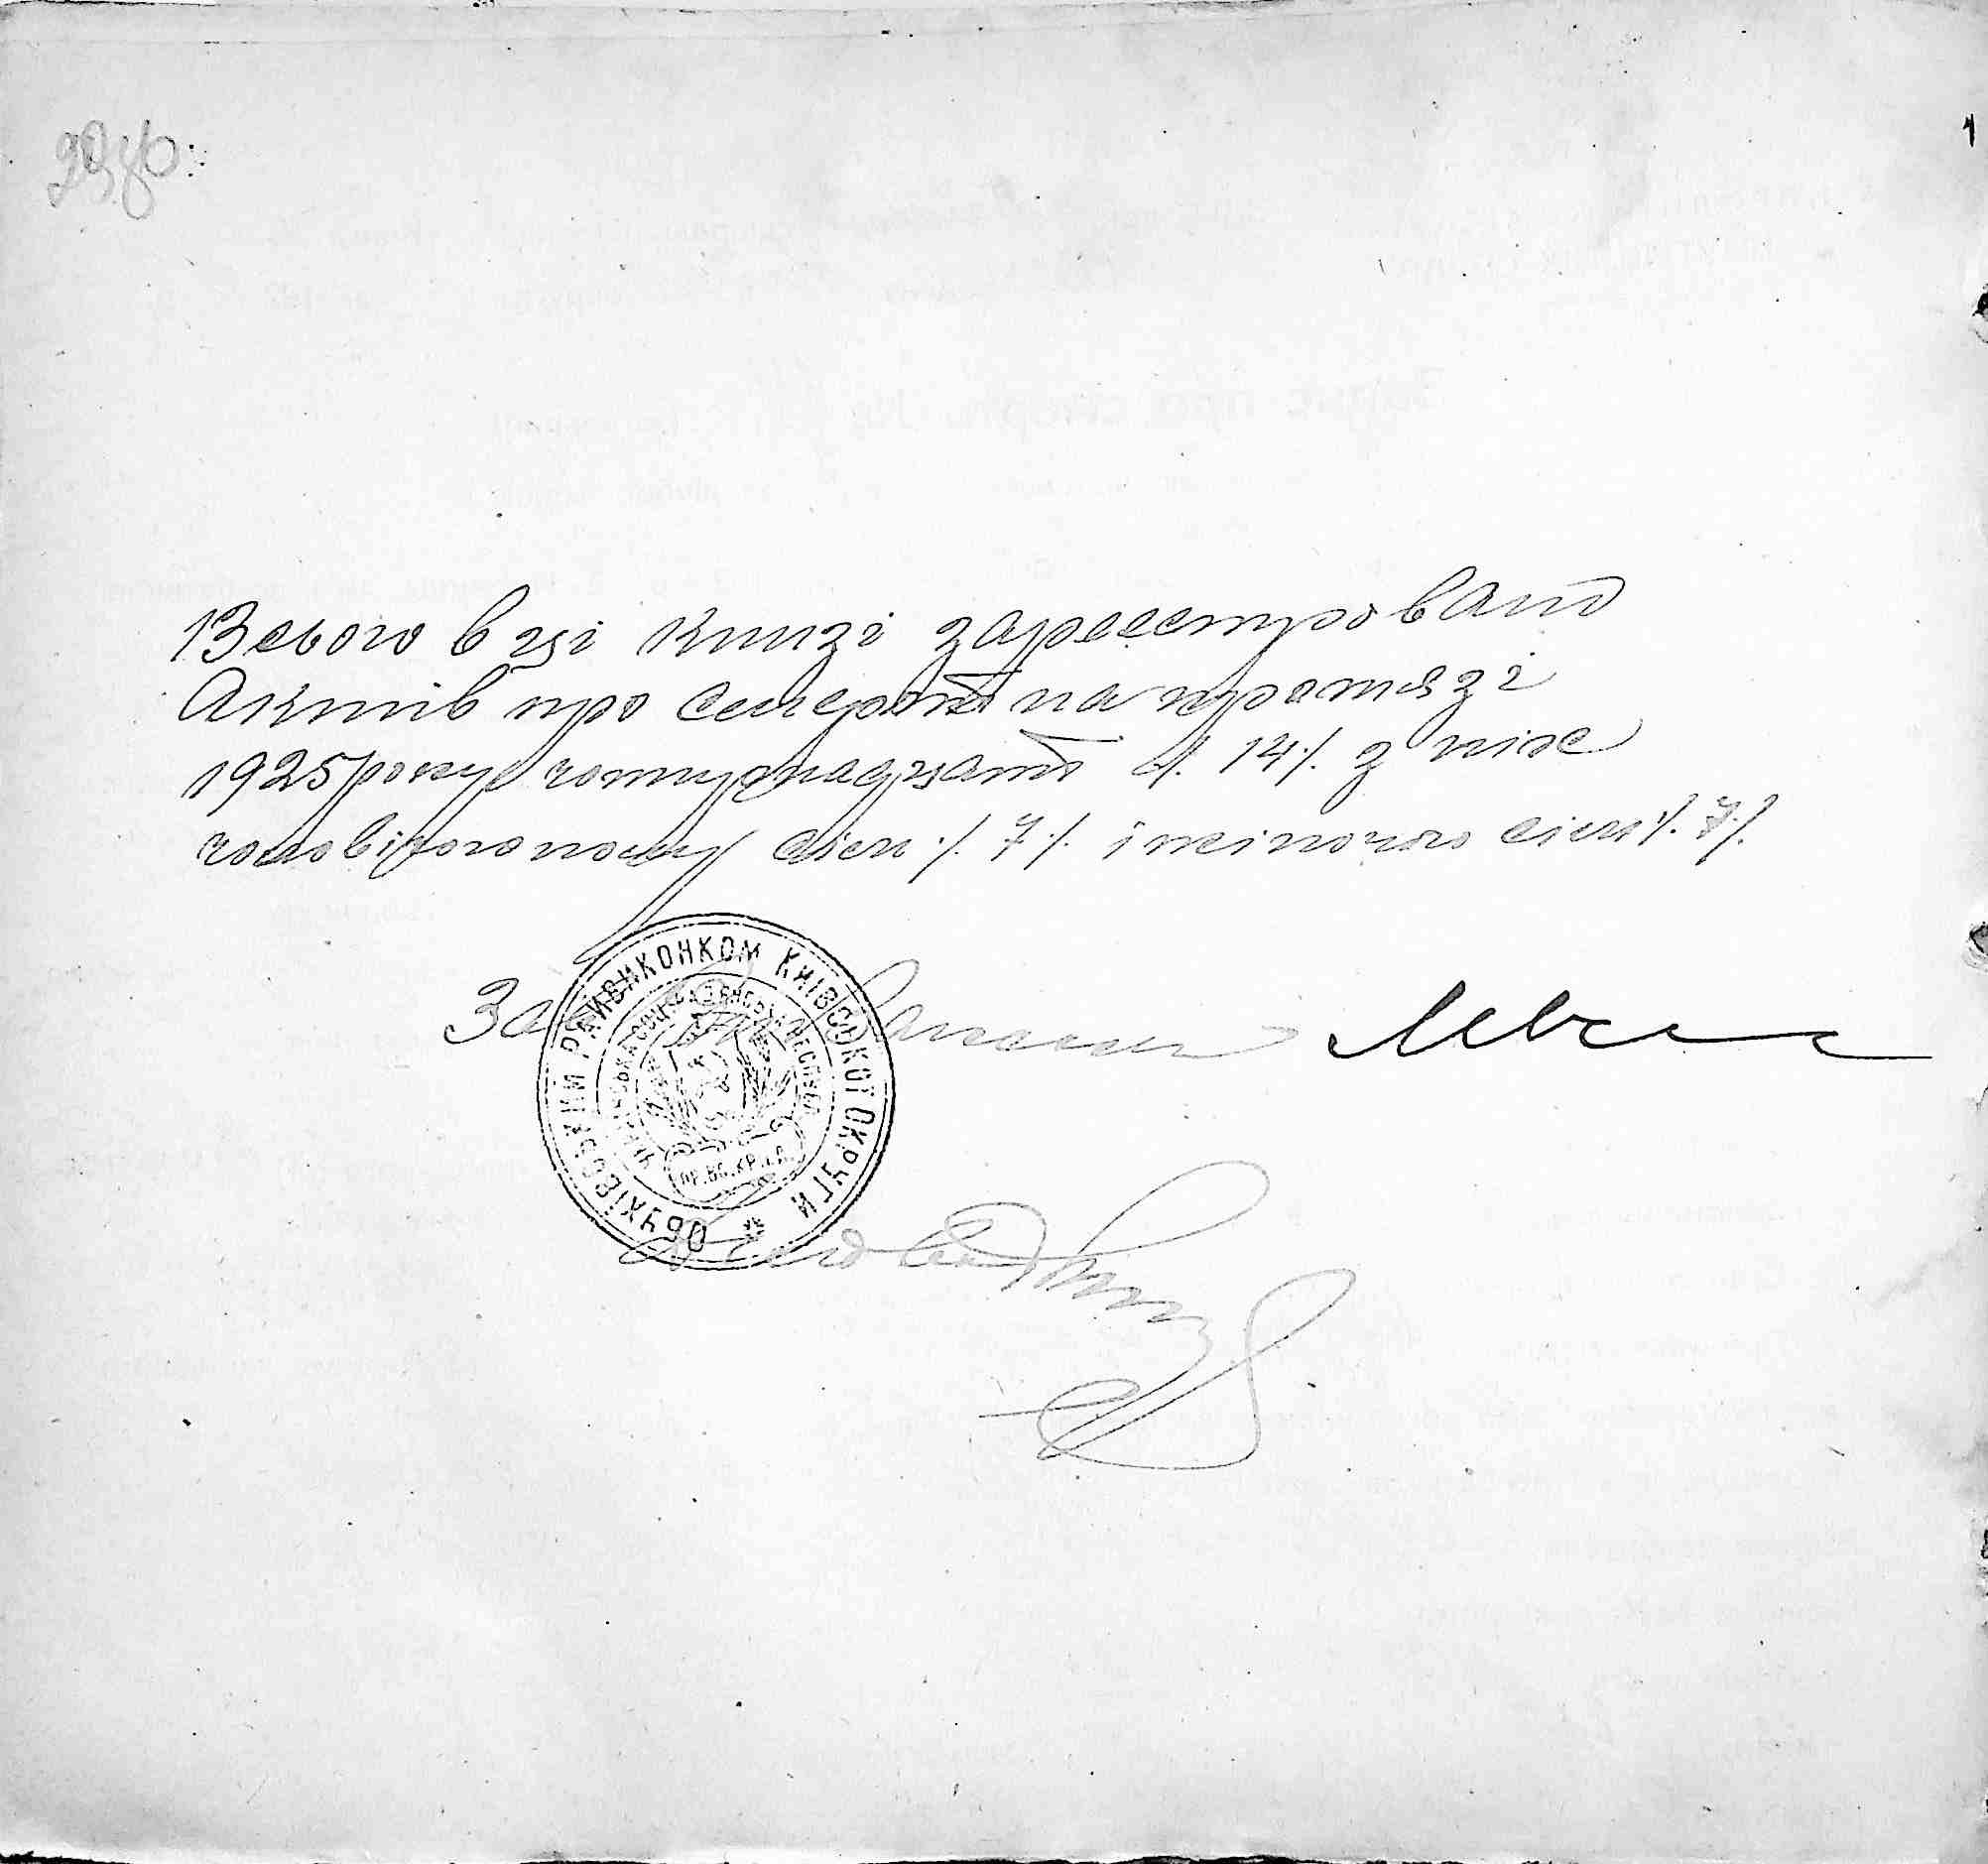 Всього в ці книзі зареєстровано
Актів про смерть на протязі
1925 року чотирнадцять /. 14 /. з них
чоловічого полу сім /. 7 /. і жіночого сім /. 7 /.
Зав.
ОБУХІВСЬКИЙ РАЙВИКОНКОМ КИЇВСЬКОЇ ОКРУГИ